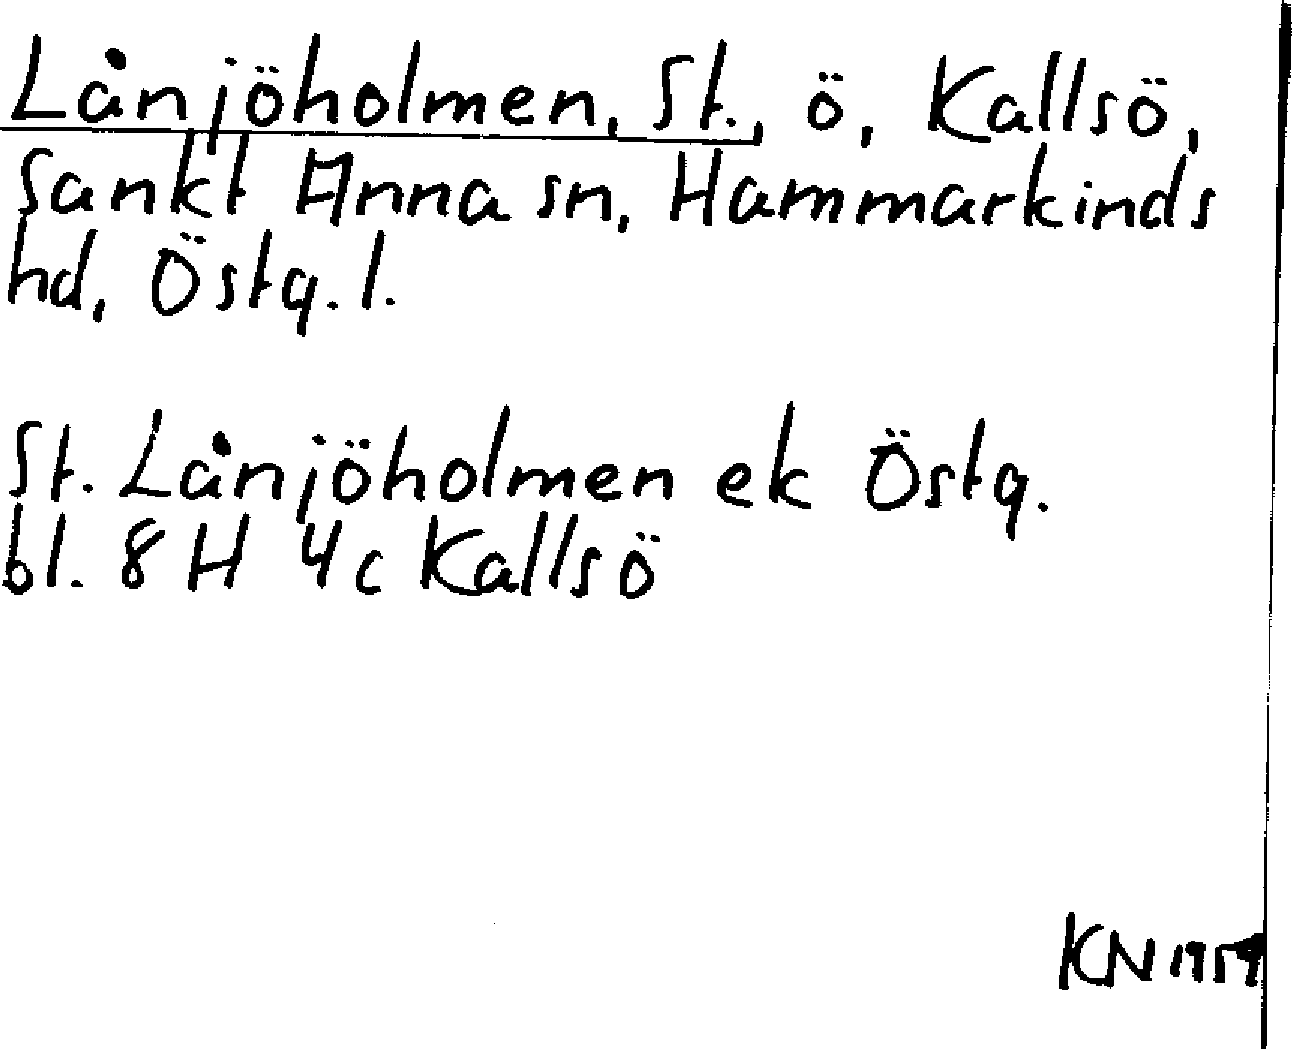 Lånjöholmen, St., ö, Kallsö,
Sankt Anna sn, Hammarkinds
hd, Östg. l.
St. Lånjöholmen ek Östg.
bl. 8 H 4 c Kallsö
KN